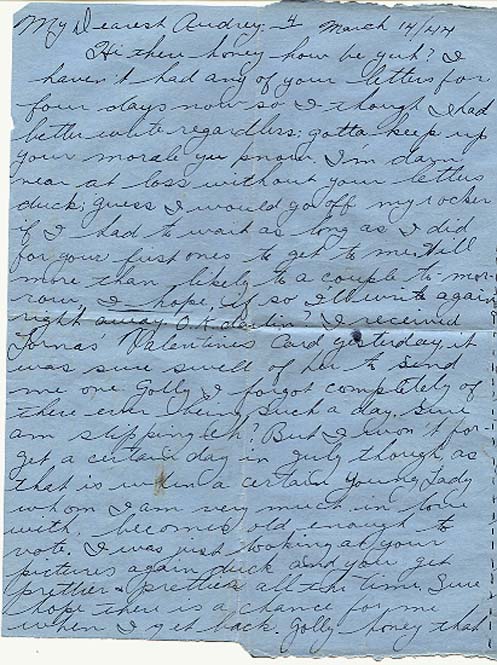 My Dearest Audrey - 4 March 14/44
Hi there honey how be yuh? I
haven't had any of your letters for
four days now so I though I had
better write regardless; gotta keep up
your morale you know. I'm darn
near at loss without your letters
duck; guess I would go off my rocker
if I had to wait as long as I did
for your first ones to get to me. Will
more than likely to a couple to-mor-
row, I hope, if so I'll write again
right away O.K. darlin? I received
Lorna's Valentines Card yesterday, it
was sure swell of her to send
me one Golly I forgot completely of
there ever being such a day. Sure
am slipping eh? But I won't for-
get a certain day in July though as
that is when a certain young Lady
whom I am very much in love
with, becomes old enough to
vote. I was just looking at your
pictures again duck and you get
prettier & prettier all the time. Sure
hope there is a chance for me
when I get back. Golly honey that